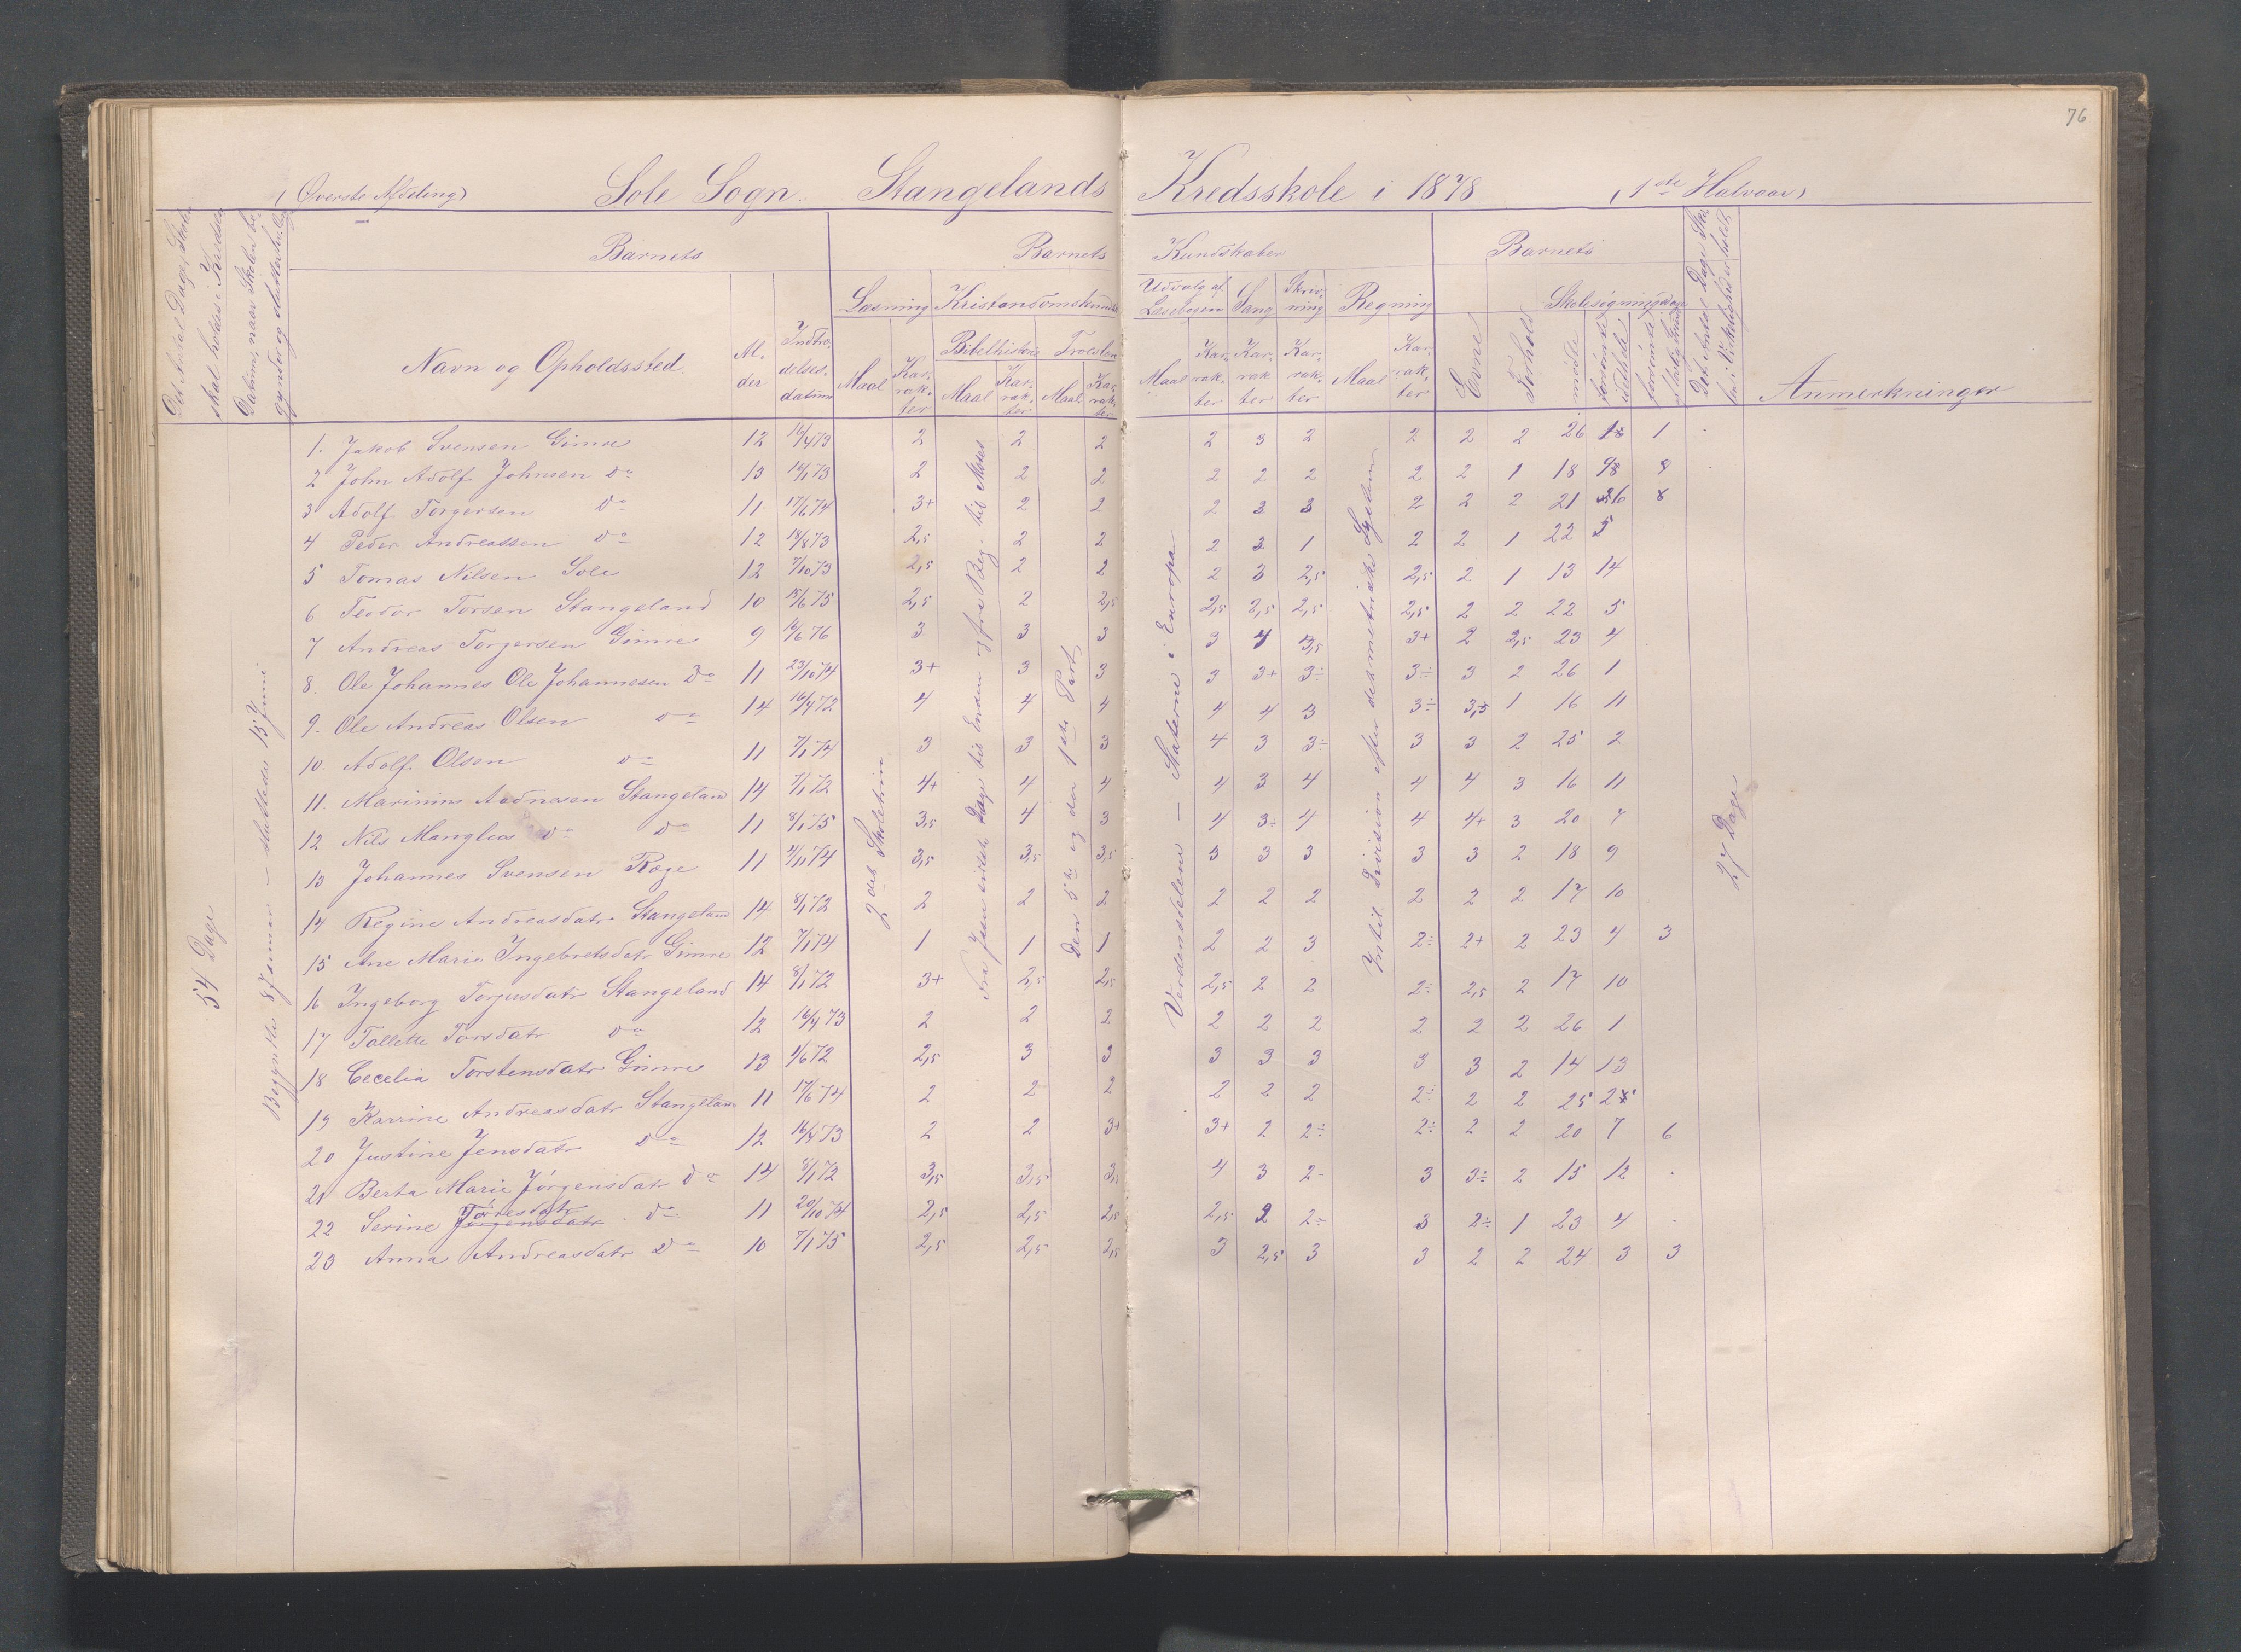 76
(Øverste Afdeling) Sole Sogn. Stangelands Kredsskole i 1878 (1ste Halvaar)
Det Antal Dage, Skolen skal holdes i Kredsen
Datum, naar Skolen begyndte og sluttede
Barnets
Barnets Kundskaber
Barnets
Læsning Kristendomskundskab
Udvalg af Læsebogen Sang Skrivning Regning
Bibelhistorie Troeslære
Navn og Opholdssted. Alder Indtrædelsesdatum Maal Karakter Maal Karakter Maal Karakter
Maal Karakter Karakter Karakter Maal Karakter Evne Forhold
Skolesøgningsdage
mødte
forsømte i det hele
forsømte af lovlig Grund
Det Antal Dage Skolen i Virkelighed er holdt
Anmerkninger
54 Dage
Begyndte 8 Januar – sluttede 15 Juni
2det Skoletrin
Den 5te og den 1ste Part
Verdensdelene – Staterne i Europa
Indtil Division efter det metriske System
27 Dage
1. Jakob Svensen Gimre 12 16/4 73 2 2 2 2 3 2 2 2 2 26 1
2 John Adolf Johnsen do 13 16/1 73 2 2 2 2 2 2 2 2 1 18 9
3 Adolf Torgersen do 11 17/6 74 3+ 2 2 2 3 3 2 2 2 21 6 8
4 Peder Andreassen do 12 18/8 73 2,5 2 2 2 3 1 2 2 1 22 5
5 Tomas Nilsen Sole 12 7/10 73 2,5 2 2 2 3 2,5 2,5 2 1 13 14
6 Teodor Torsen Stangeland 10 18/6 75 2,5 2 2,5 2,5 2,5 2,5 2,5 2 2 22 5
7 Andreas Torgersen Gimre 9 16/6 76 3 3 3 3 4 3,5 3+ 2 2,5 23 4
8. Ole Johannes Ole Johannesen do 11 23/10 74 3+ 3 3 3 3+ 3÷ 3÷ 3 2 26 1
9. Ole Andreas Olsen do 14 16/4 72 4 4 4 4 4 3 3÷ 3,5 1 16 11
10. Adolf Olsen do 11 7/1 74 3 3 3 4 3 3÷ 3 3 2 25 2
11. Marinius Aadnesen Stangeland 14 7/1 72 4+ 4 4 4 3 4 4 4 3 16 11
12 Nils Manglius do do 11 8/1 75 3,5 4 3 4 3÷ 4 4 4+ 3 20 7
13 Johannes Svensen Røge 11 4/11 74 3,5 3,5 3,5 3 3 3 3 3 2 18 9
14 Regine Andreasdatr Stangeland 14 8/1 72 2 2 2 2 2 2 2 2 2 17 10
15 Ane Marie Ingebretsdatr Gimre 12 7/1 74 1 1 1 2 2 3 2÷ 2+ 2 23 4 3
16 Ingeborg Torjusdatr Stangeland 14 8/1 72 3+ 2,5 2,5 2,5 2 2 2÷ 2,5 2 17 10
17 Tallette Torsdatr do 12 16/4 73 2 2 2 2 2 2 2 2 2 26 1
18 Cecelia Torstensdatr Gimre 13 4/6 72 2,5 3 3 3 3 3 3 3 2 14 13
19 Karrine Andreasdatr Stangeland 11 17/6 74 2 2 2 2 2 2 2÷ 2 2 25 2
20 Justine Jensdatr do 12 16/4 73 2 2 3+ 3+ 2 2÷ 2÷ 2 2 20 7 6
21 Berta Marie Jörgensdatr do 14 8/1 72 3,5 3,5 3,5 4 3 2- 3 3÷ 2 15 12
22 Serine Jörgensdatr Törresdatr do 11 20/10 74 2,5 2,5 2,5 2,5 2 2÷ 3 2÷ 1 23 4
23 Anna Andreasdatr do 10 7/1 75 2,5 2,5 2,5 3 2,5 3 3 2 2 24 3 3